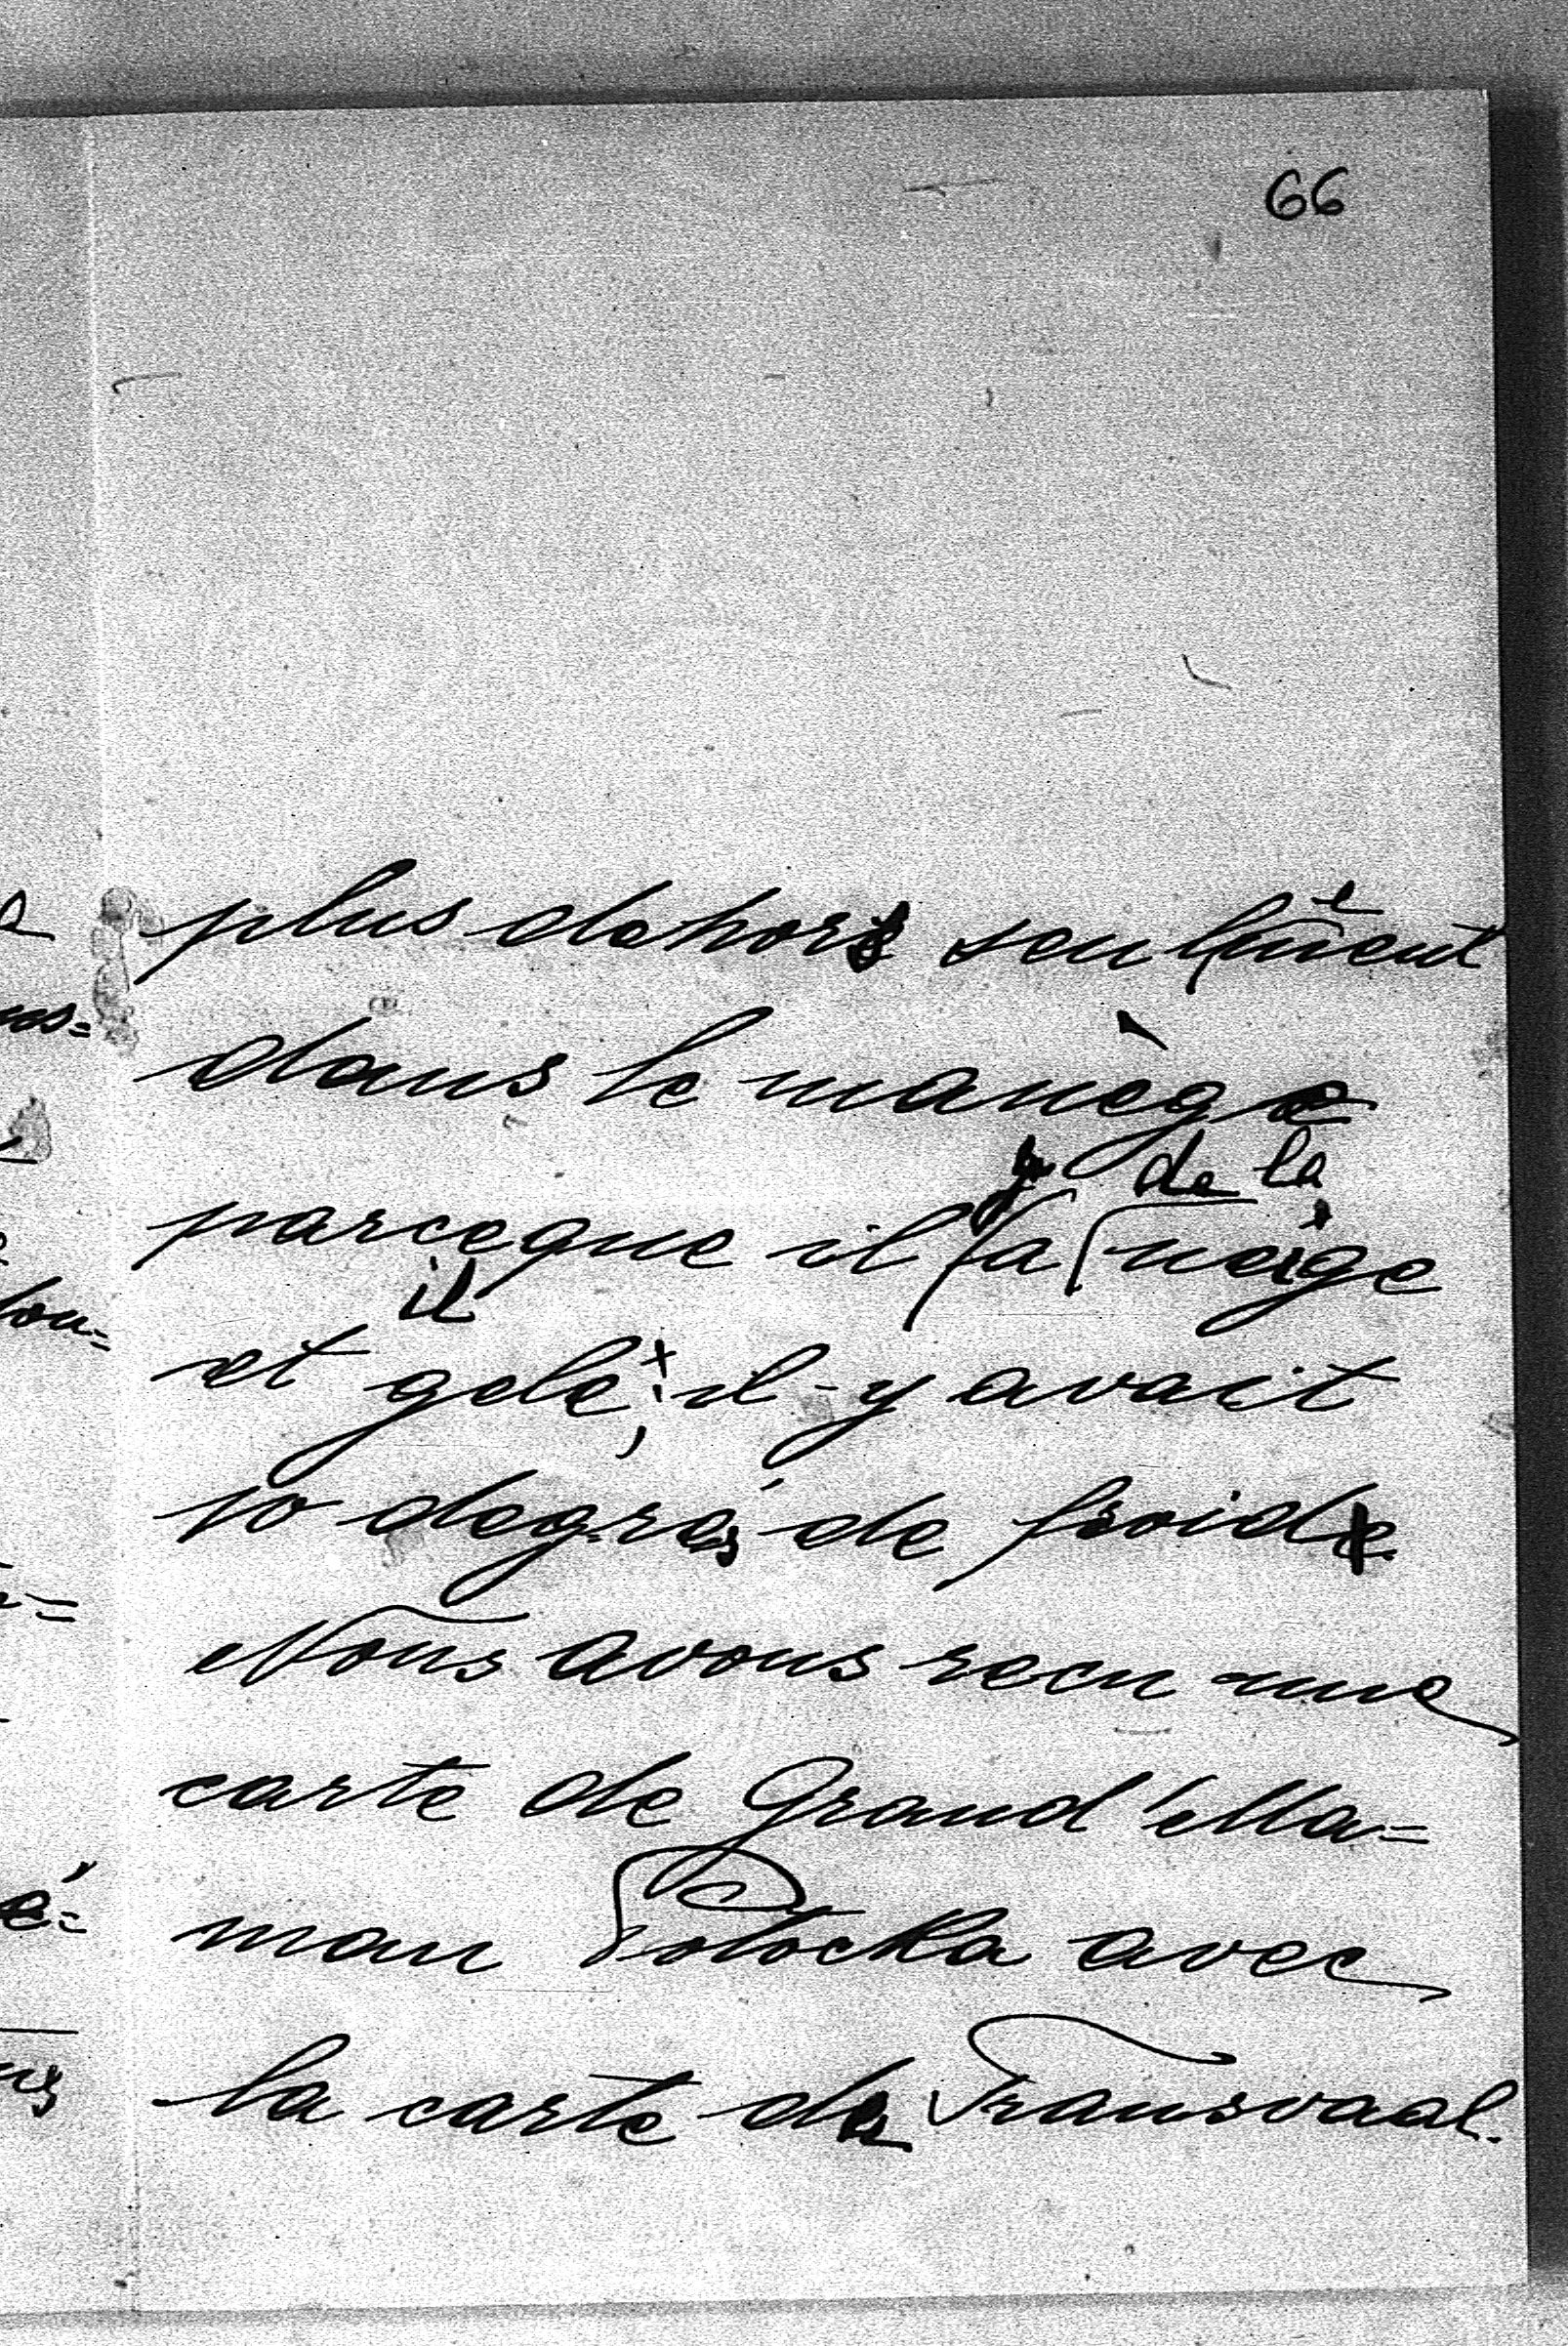 66
plus dehors seulement
dans le manège
parceque il y a de la neige
et il gelé; il-y avait
10 degrés de froid
Nous avons recu une
carte de Grand'Ma=
man Potocka avec
la carte de Transvaal.